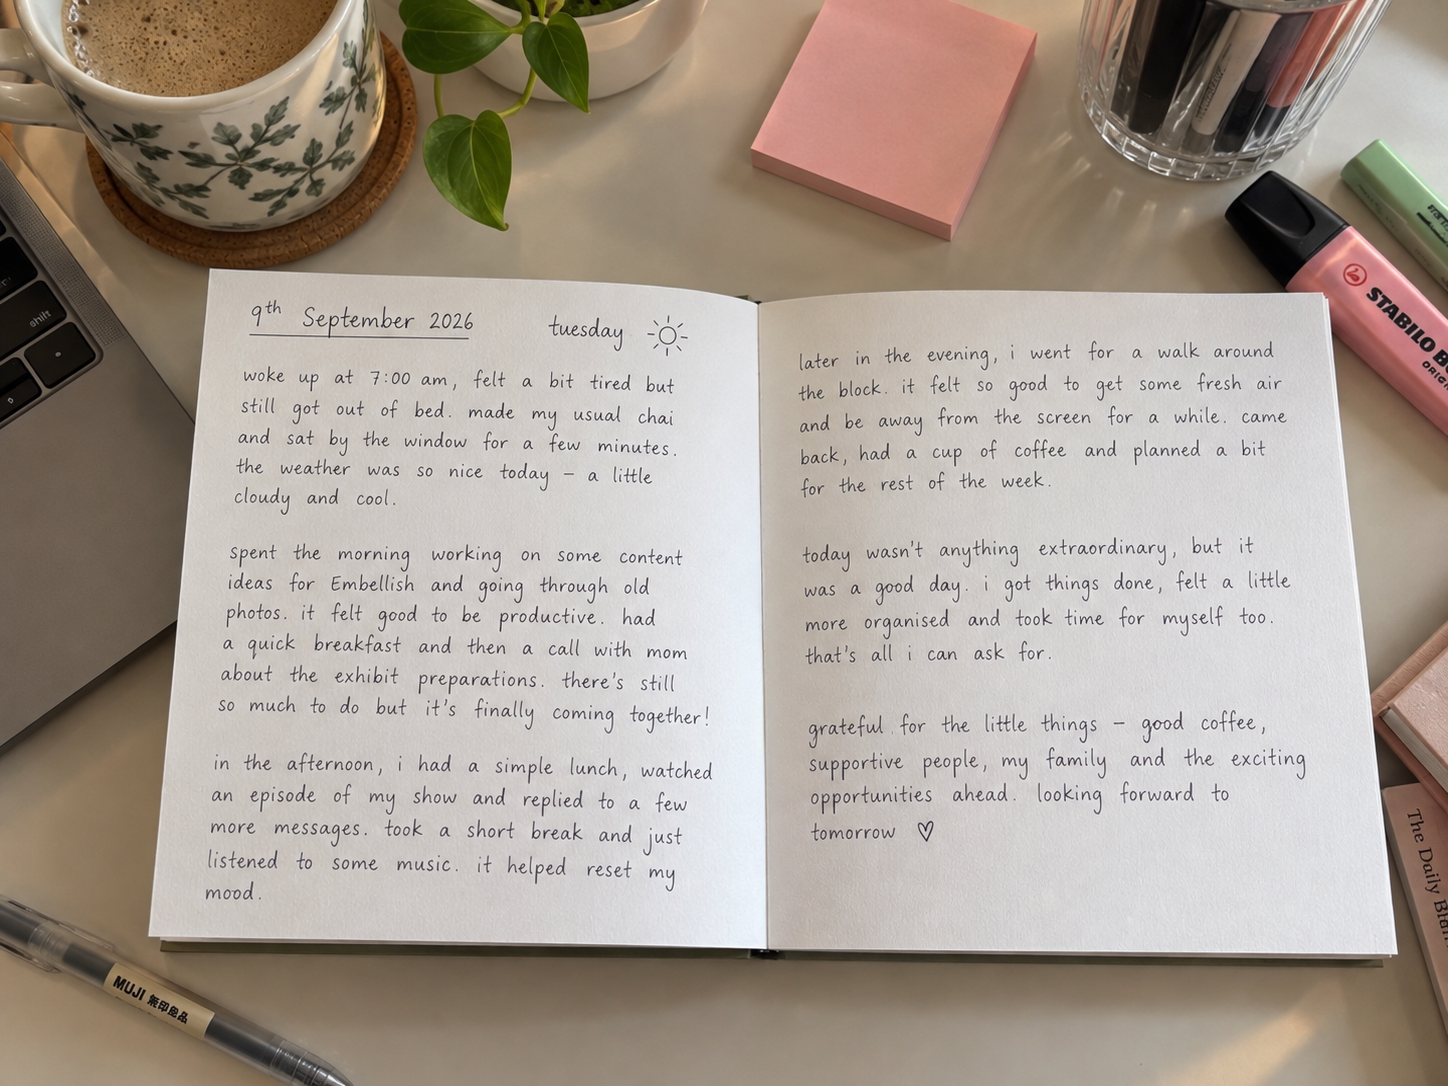 9th September 2026 tuesday
woke up at 7:00 am, felt a bit tired but
still got out of bed. made my usual chai
and sat by the window for a few minutes.
the weather was so nice today – a little
cloudy and cool.
spent the morning working on some content
ideas for Embellish and going through old
photos. it felt good to be productive. had
a quick breakfast and then a call with mom
about the exhibit preparations. there's still
so much to do but it's finally coming together!
in the afternoon, i had a simple lunch, watched
an episode of my show and replied to a few
more messages. took a short break and just
listened to some music. it helped reset my
mood.
later in the evening, i went for a walk around
the block. it felt so good to get some fresh air
and be away from the screen for a while. came
back, had a cup of coffee and planned a bit
for the rest of the week.
today wasn't anything extraordinary, but it
was a good day. i got things done, felt a little
more organised and took time for myself too.
that's all i can ask for.
grateful for the little things – good coffee,
supportive people, my family and the exciting
opportunities ahead. looking forward to
tomorrow ♡
shift
STABILO
MUJI 無印良品
The Daily